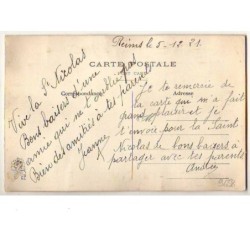 Reims le 5-12.21.
CARTE POSTALE
Correspondance
Adresse
Vive la St Nicolas
Bons baisers d'une
amie qui ne t'oublie pas
Bien des amitiés à tes parents
Jeanne
Je te remercie de
la carte qui m'a fait
grand plaisir et je
t'envoie pour la Saint
Nicolas de bons baisers à
partager avec tes parents
Andrée